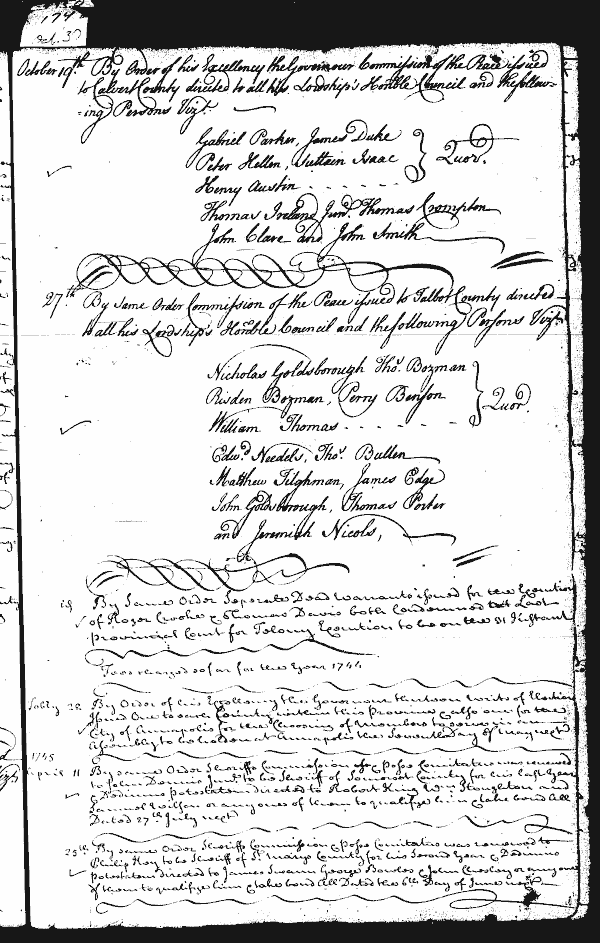 174
Oct. 30
October 19th. By Order of his Excellency the Governour Commission of the Peace issued
to Calvert County directed to all his Lordship's Honble Council and the follow-
=ing Persons Vizt.
Gabriel Parker, James Duke
Peter Hellen, Suttain Isaac } Quor.
Henry Austin - - - - -
Thomas Ireland Junr. Thomas Crompton
John Clare and John Smith
27th By Same Order Commission of the Peace issued to Talbot County directed
to all his Lordship's Honble Council and the following Persons Vizt.
Nicholas Goldsborough Thos. Bozman
Risden Bozman, Perry Benson } Quor.
William Thomas - - - - - -
Edwd. Needels, Thos. Bullen
Matthew Tilghman, James Edge
John Goldsborough, Thomas Porter
and Jeremiah Nicols,
By Same Order Seperate Dead Warrants issued for the Execution
of Roger Crooke & Thomas Davis both Condemned at Last
provincial Court for Felony Execution to be on the 31 Instant
Thus charged so far for the Year 1744
By Order of his Excellency the Governour thirteen Writs of Election
Issued One to each County within this Province & also one for the
City of Annapolis for the Choosing of Members to serve in an
Assembly to be holden at Annapolis the Day of May next
1745
April 11 By same Order Sheriffs Commission & Posse Comitatus was renewed
to John Junr. to be Sheriff of Somerset County for his last Year
& Dedimus potestatem directed to Robert King Wm. Stoughton and
Samuel Wilson or any one of them to qualifye him & take bond All
Dated 27th July next
25th By Same Order Sheriffs Commission & Posse Comitatus was renewed to
Philip Key to be Sheriff of St. Marys County for his Second Year & Dedimus
potestatem directed to James Swann George Bowles & John Chesley or any one
of them to qualifye him & take bond All Dated the 6th Day of June next